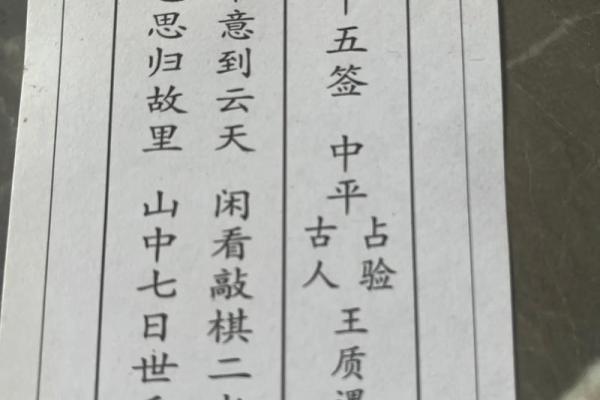 十五签 中平 占验古人 王质遇
意到云天 闲看敲棋二
思归故里 山中七日世